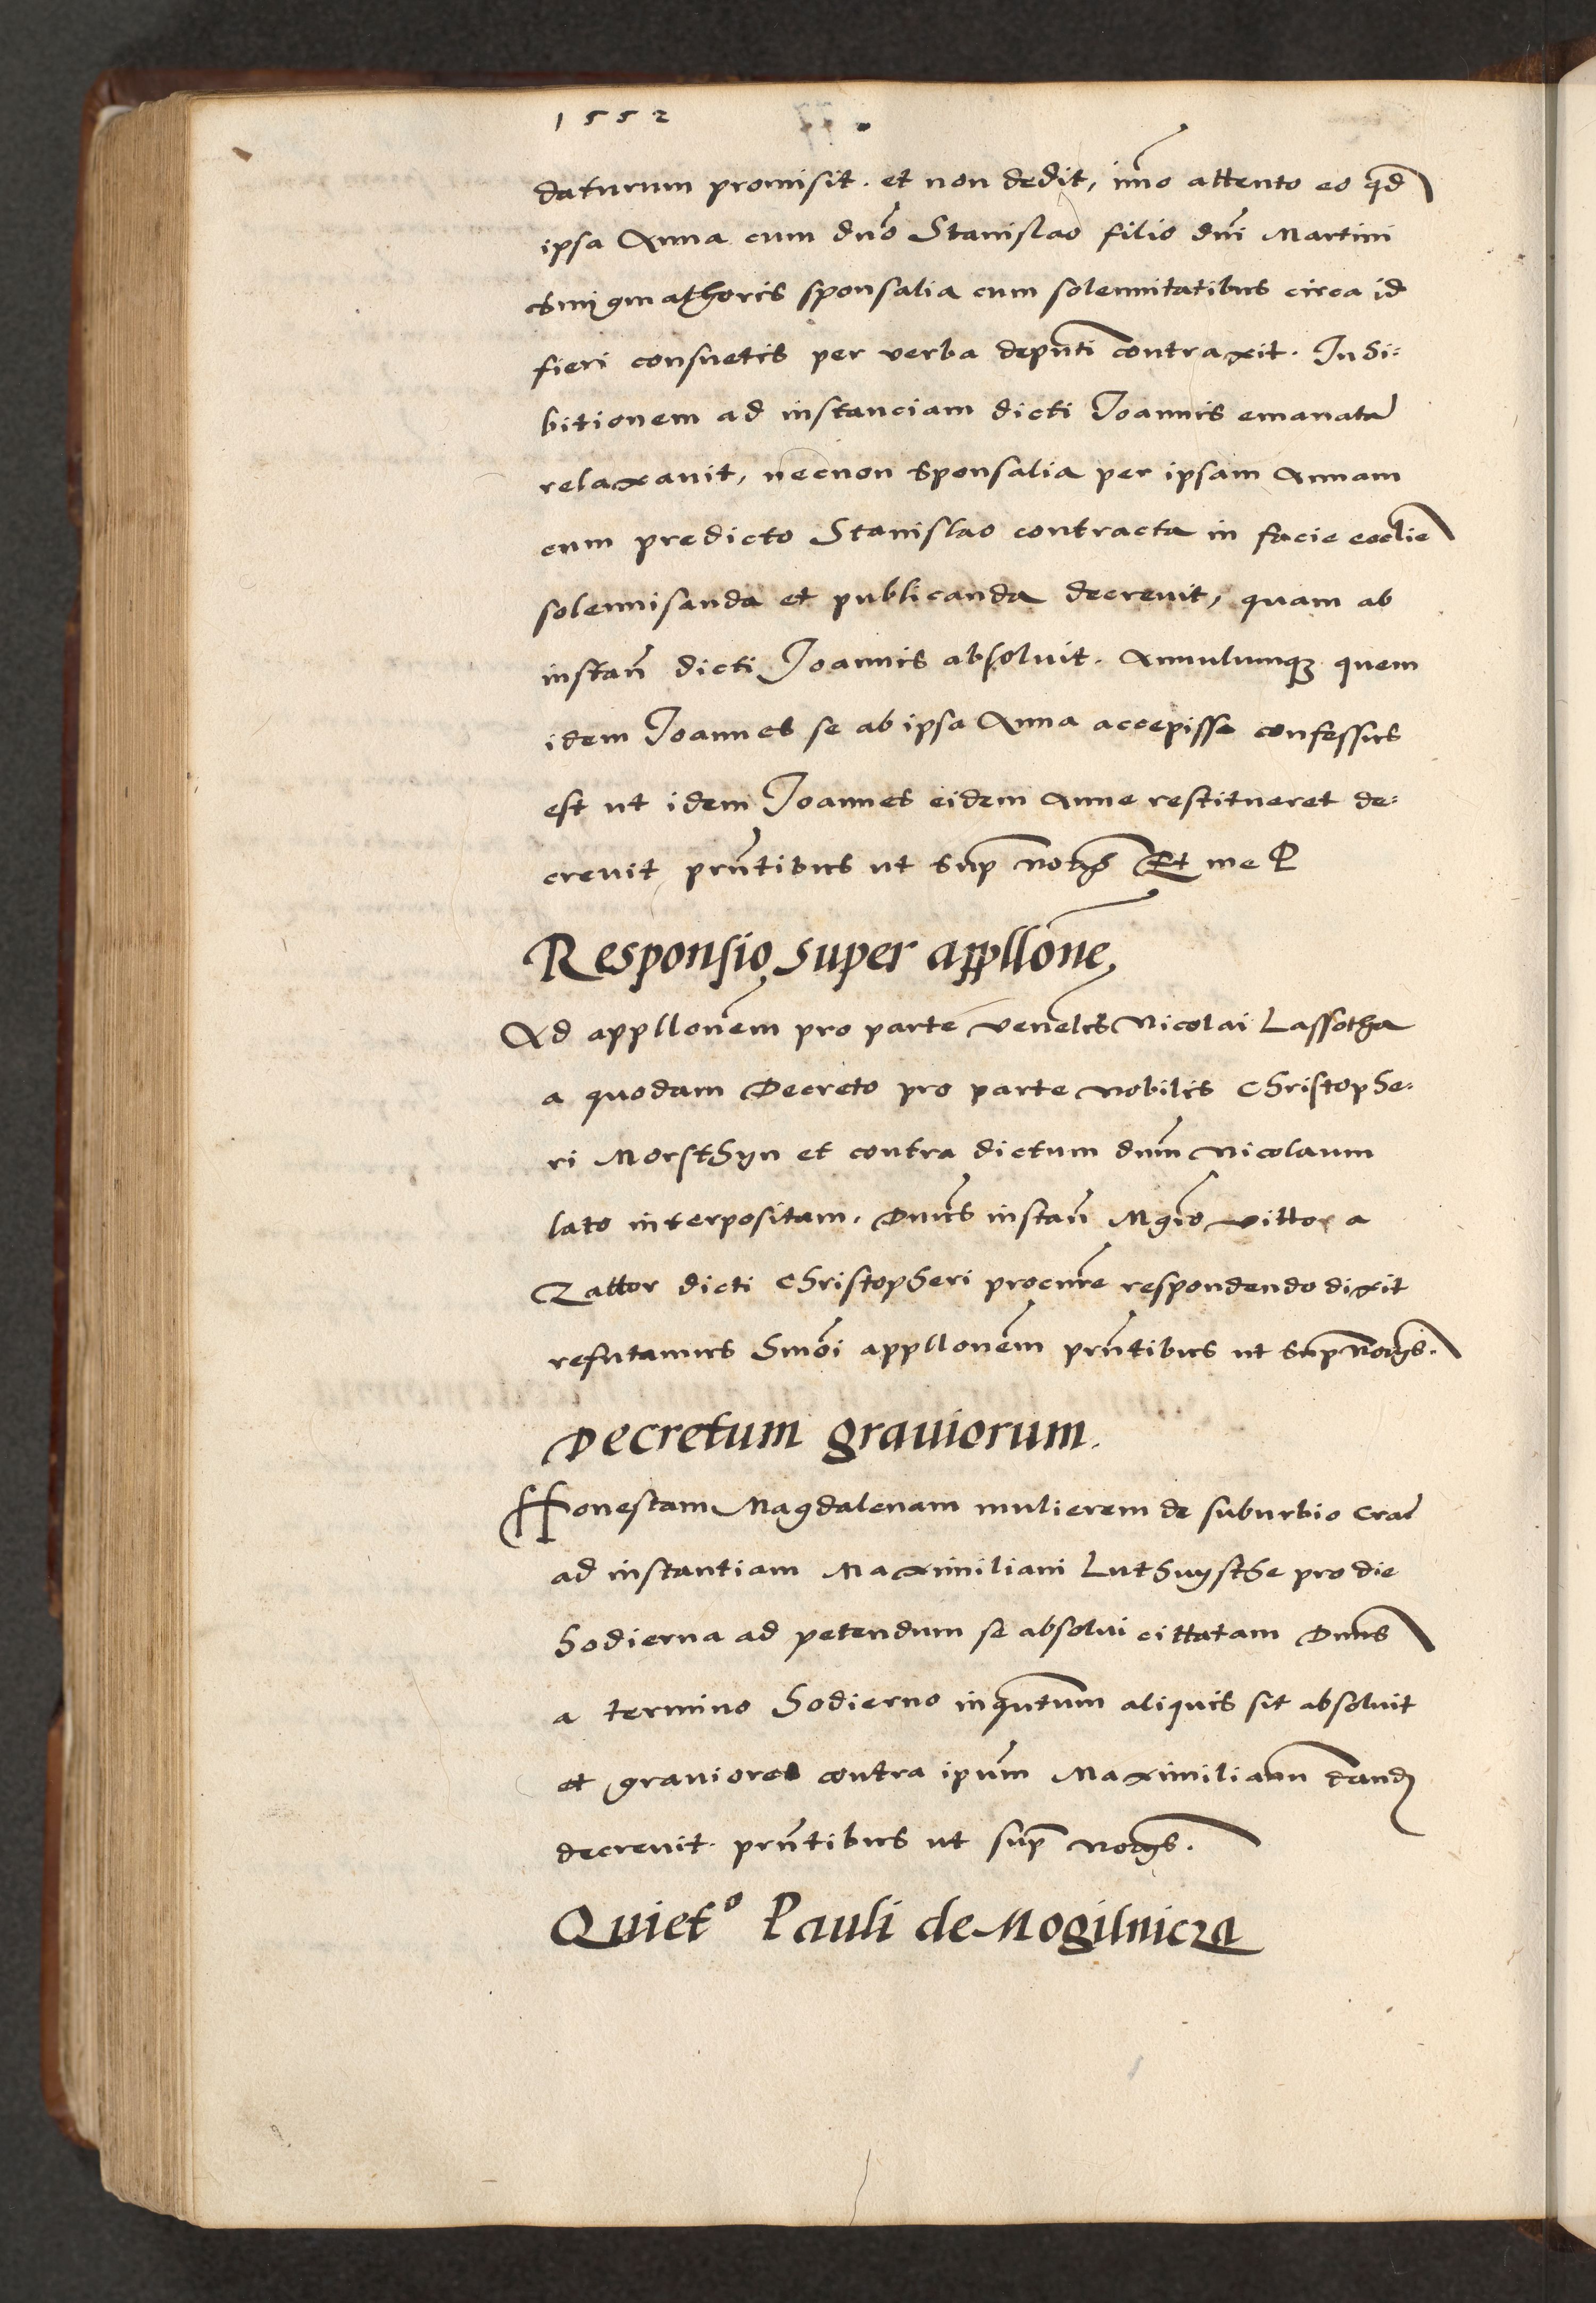 1552
daturum promisit. et non dedit, im̃o attento eo qđ
ipsa Anna cum dño Stanislao filio dñi Martini
Smigmathoris sponsalia cum solennitatibus circa id
fieri consuetis per verba depñti contraxit. Inhi=
bitionem ad instanciam dicti Joannis emanatã
relaxavit, necnon sponsalia per ipsam Annam
cum predicto Stanislao contracta in facie ecclie
solennisanda et publicanda decrevit, quam ab
instañ dicti Joannis absoluit. Annulumqȝ quem
idem Joannes se ab ipsa Anna accepisse confessus
est ut idem Joannes eidem Anne restitueret de=
crevit prñtibus ut sup̃ Et me
Responsio super appllõne
Ad appllonẽm pro parte Venelis Nicolai Lassotha
a quodam Decreto pro parte Nobilis Christophe=
ri Morsthyn et contra dictum dñm Nicolaum
lato interpositam. Dnus instañ Mgrõ Vittor a
Zattor dicti Christopheri procurẽ respondendo dixit
refutamus hmõi appllonẽm prñtibus ut sup̃
Decretum grauiorum.
Honestam Magdalenam mulierem de suburbio Crac̃
ad instantiam Maximiliani Luthnysthe pro die
hodierna ad petendum se absolui cittatam Dnus
a termino hodierno inqũntum aliquis sit absoluit
et grauiores contra ipũm Maximilianũ dand̃
decrevit. prñtibus ut sup̃
Quietº Pauli de Mogilnicza